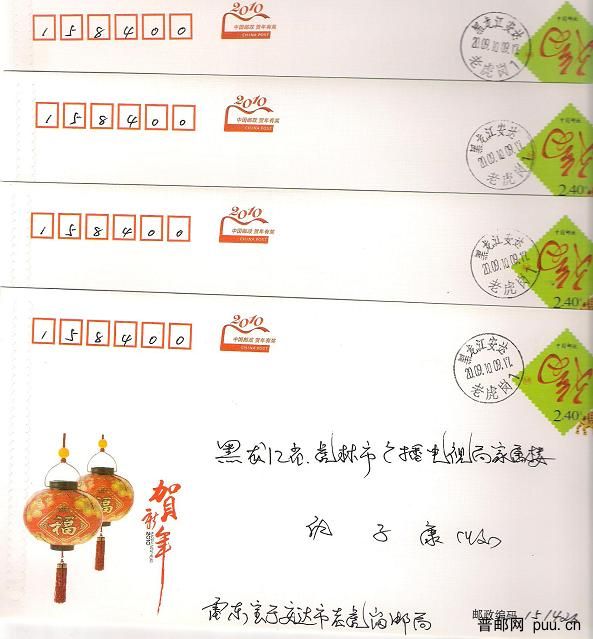 158400
2010
中国邮政 贺年有奖
CHINA POST
黑龙江安达
老虎岗1
158400
2010
中国邮政 贺年有奖
CHINA POST
黑龙江安达
2009.10.09.17
老虎岗1
中国邮政
2.40元
158400
2010
中国邮政 贺年有奖
CHINA POST
黑龙江安达
2009.10.09.17
老虎岗1
中国邮政
2.40元
158400
2010
中国邮政 贺年有奖
CHINA POST
黑龙江安达
2009.10.09.17
老虎岗1
中国邮政
2.40元
黑龙江省虎林市广播电视局家属楼
子康(收)
福
福
贺新年
2010
安达市老虎岗邮局
邮政编码
普邮网 puu.cn